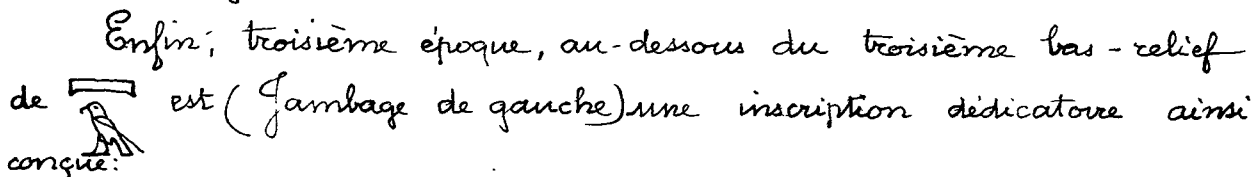 Enfin, troisième époque, au-dessous du troisième bas-relief
de est (Jambage de gauche) une inscription dédicatoire ainsi
conçue: